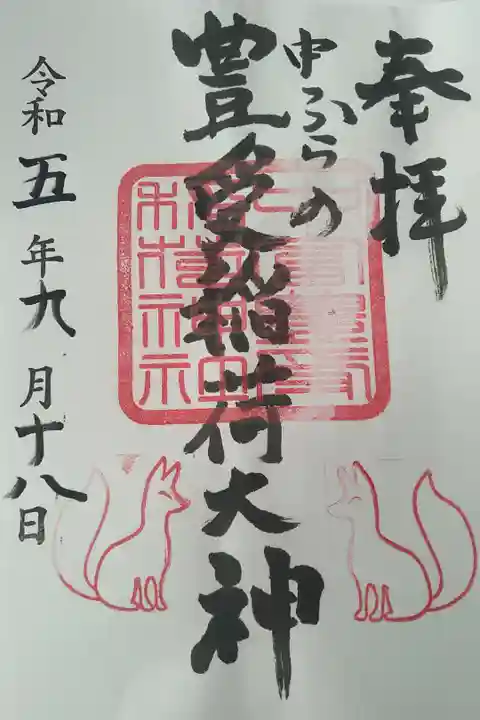 奉拝
中ふらの
豊受稲荷大神
令和五年九月十八日